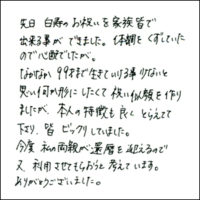 先日 白寿のお祝いを家族皆で
出来る事ができました。体調をくずしていた
ので心配でしたが、
なかなか 99才まで生きていける事 少ないと
思い何か形にしたくて祝い似顔を作り
ましたが、本人の特徴も良く とらえて
下さり、皆 ビックリしていました。
今度 私の両親が還暦を迎えるので
又、利用させてもらおうと考えています。
ありがとうございました。